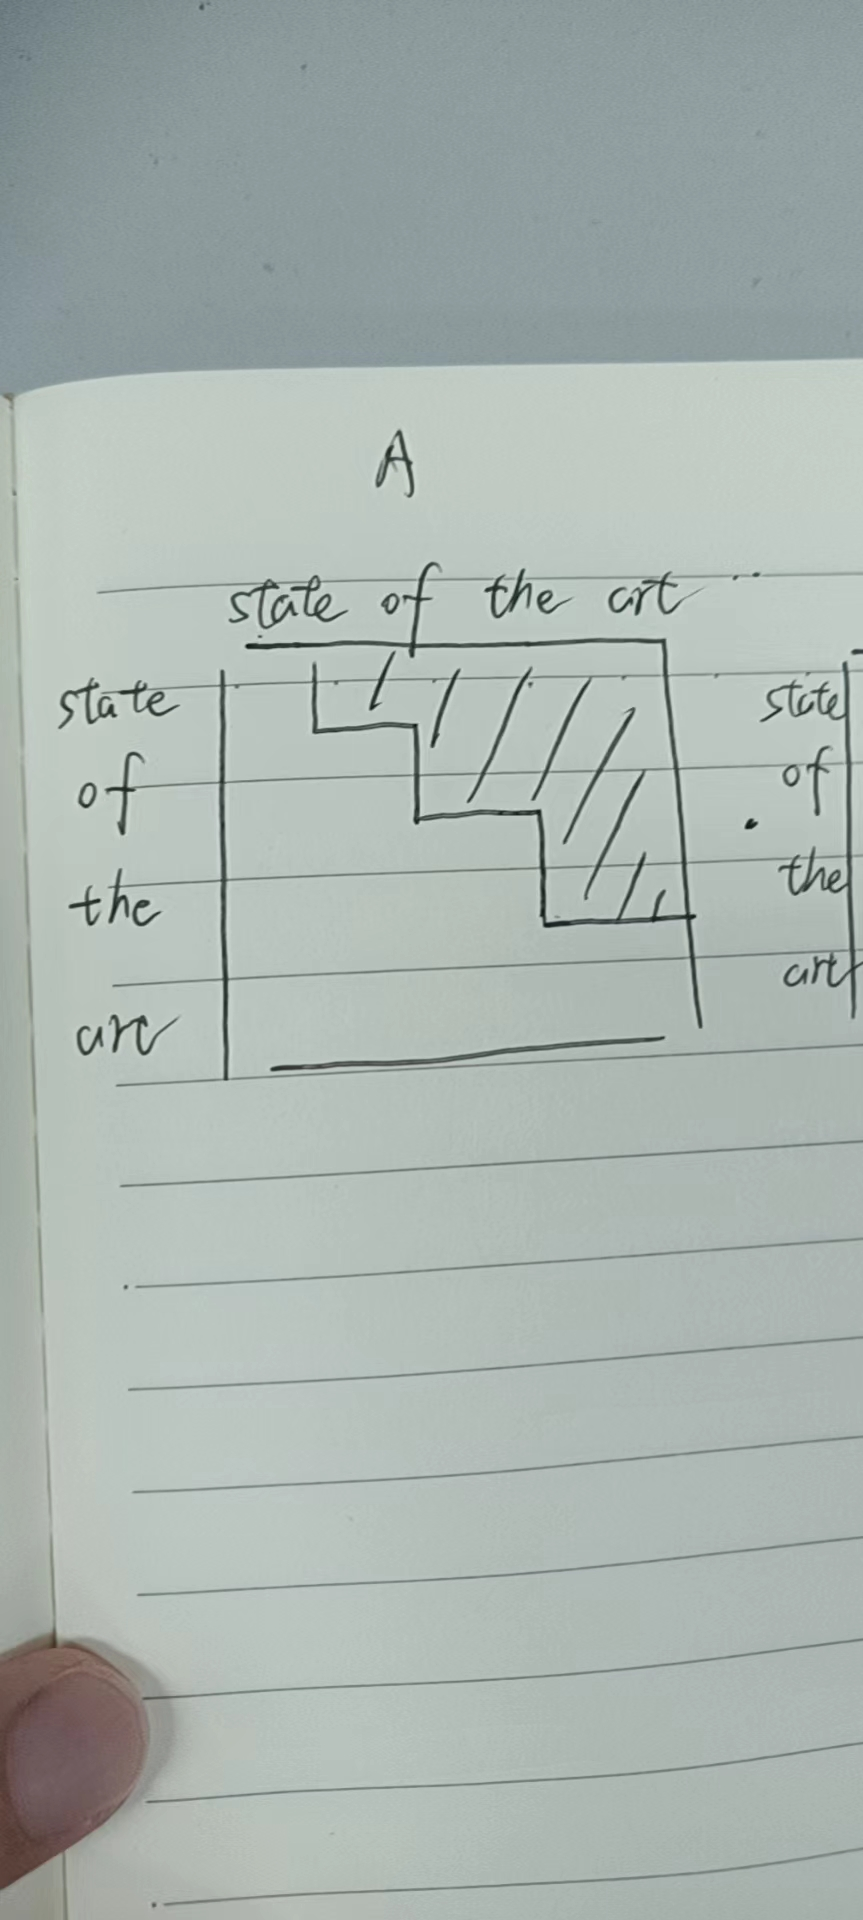 A
state of the art
state
of
the
arc
state
of
the
art